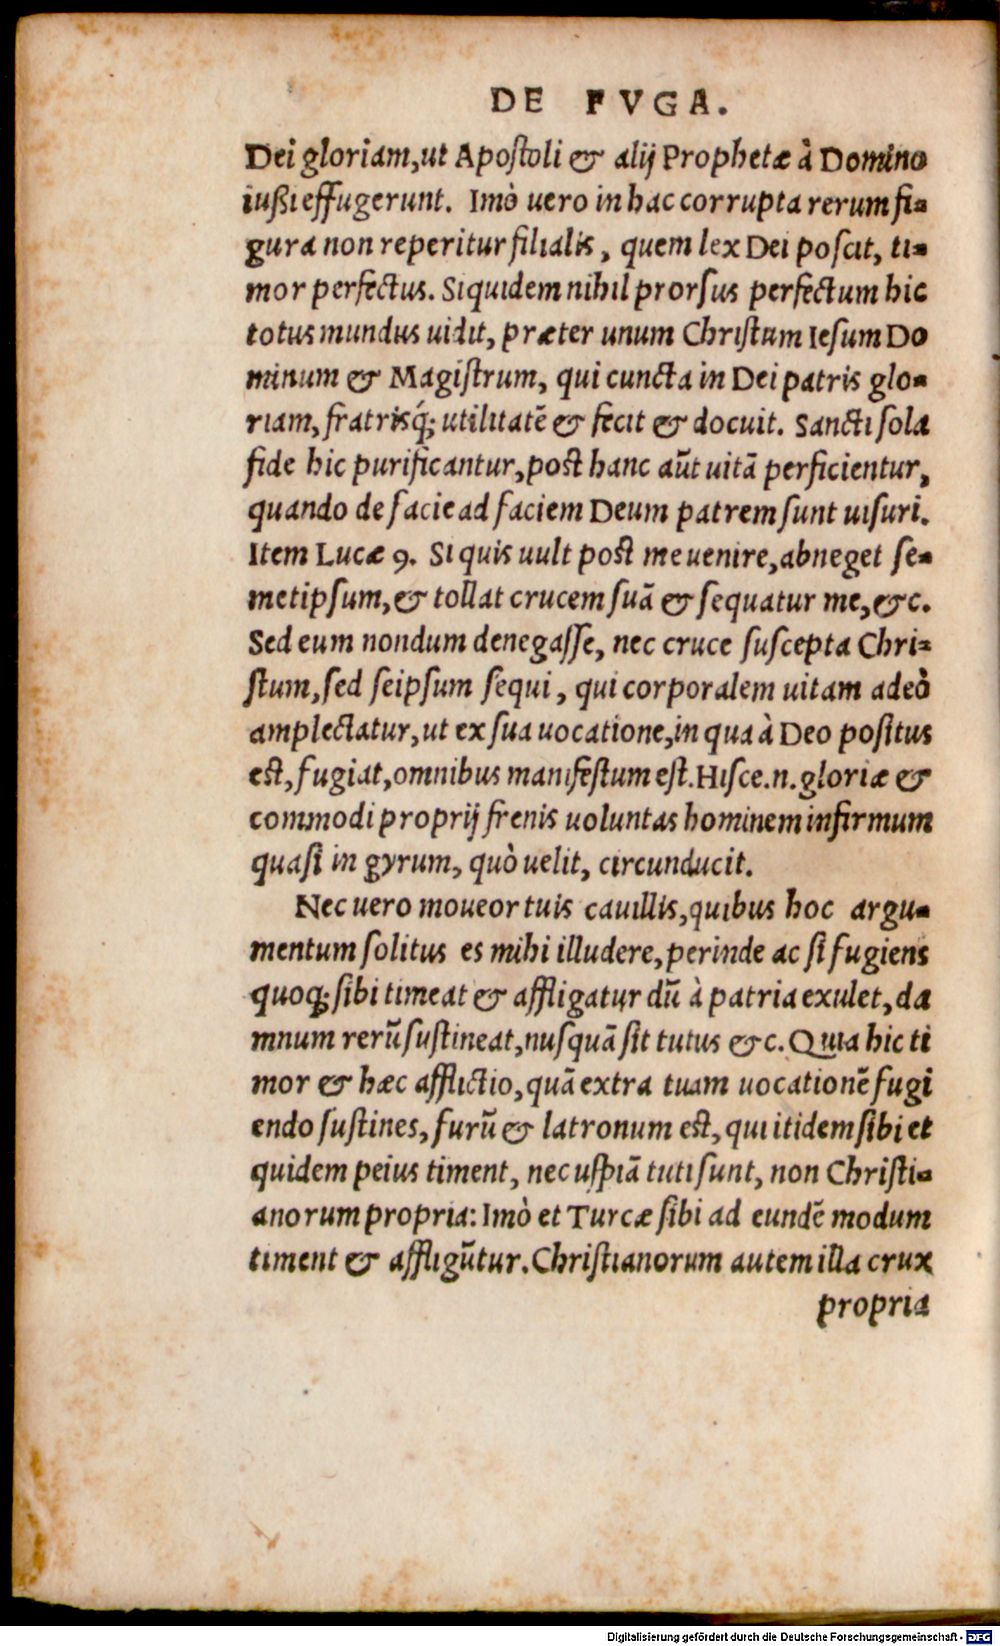 DE FVGA.
Dei gloriam, ut Apoſtoli & alij Prophetæ à Domino
iußi effugerunt. Imò uero in hac corrupta rerum fi-
gura non reperitur filialis, quem lex Dei poſcit, ti-
mor perfectus. Siquidem nihil prorſus perfectum hic
totus mundus uidit, præter unum Chriſtum Ieſum Do
minum & Magiſtrum, qui cuncta in Dei patris glo-
riam, fratrisq́; utilitatē & fecit & docuit. Sancti ſola
fide hic purificantur, poſt hanc aūt uitā perficientur,
quando de facie ad faciem Deum patrem ſunt uiſuri.
Item Lucæ 9. Si quis uult poſt me uenire, abneget ſe-
metipſum, & tollat crucem ſuā & ſequatur me, &c.
Sed eum nondum denegaſſe, nec cruce ſuſcepta Chri-
ſtum, ſed ſeipſum ſequi, qui corporalem uitam adeò
amplectatur, ut ex ſua uocatione, in qua à Deo poſitus
eſt, fugiat, omnibus manifeſtum eſt. Hiſce.n. gloriæ &
commodi proprij frenis uoluntas hominem infirmum
quaſi in gyrum, quò uelit, circunducit.
Nec uero moueor tuis cauillis, quibus hoc argu-
mentum ſolitus es mihi illudere, perinde ac ſi fugiens
quoq; ſibi timeat & affligatur dū à patria exulet, da
mnum rerū ſuſtineat, nuſquā ſit tutus &c. Quia hic ti
mor & hæc afflictio, quā extra tuam uocationē fugi
endo ſuſtines, furū & latronum eſt, qui itidem ſibi et
quidem peius timent, nec uſpiā tuti ſunt, non Chriſti-
anorum propria: Imò et Turcæ ſibi ad eundē modum
timent & affligūtur. Chriſtianorum autem illa crux
propria
Digitalisierung gefördert durch die Deutsche Forschungsgemeinschaft - DFG